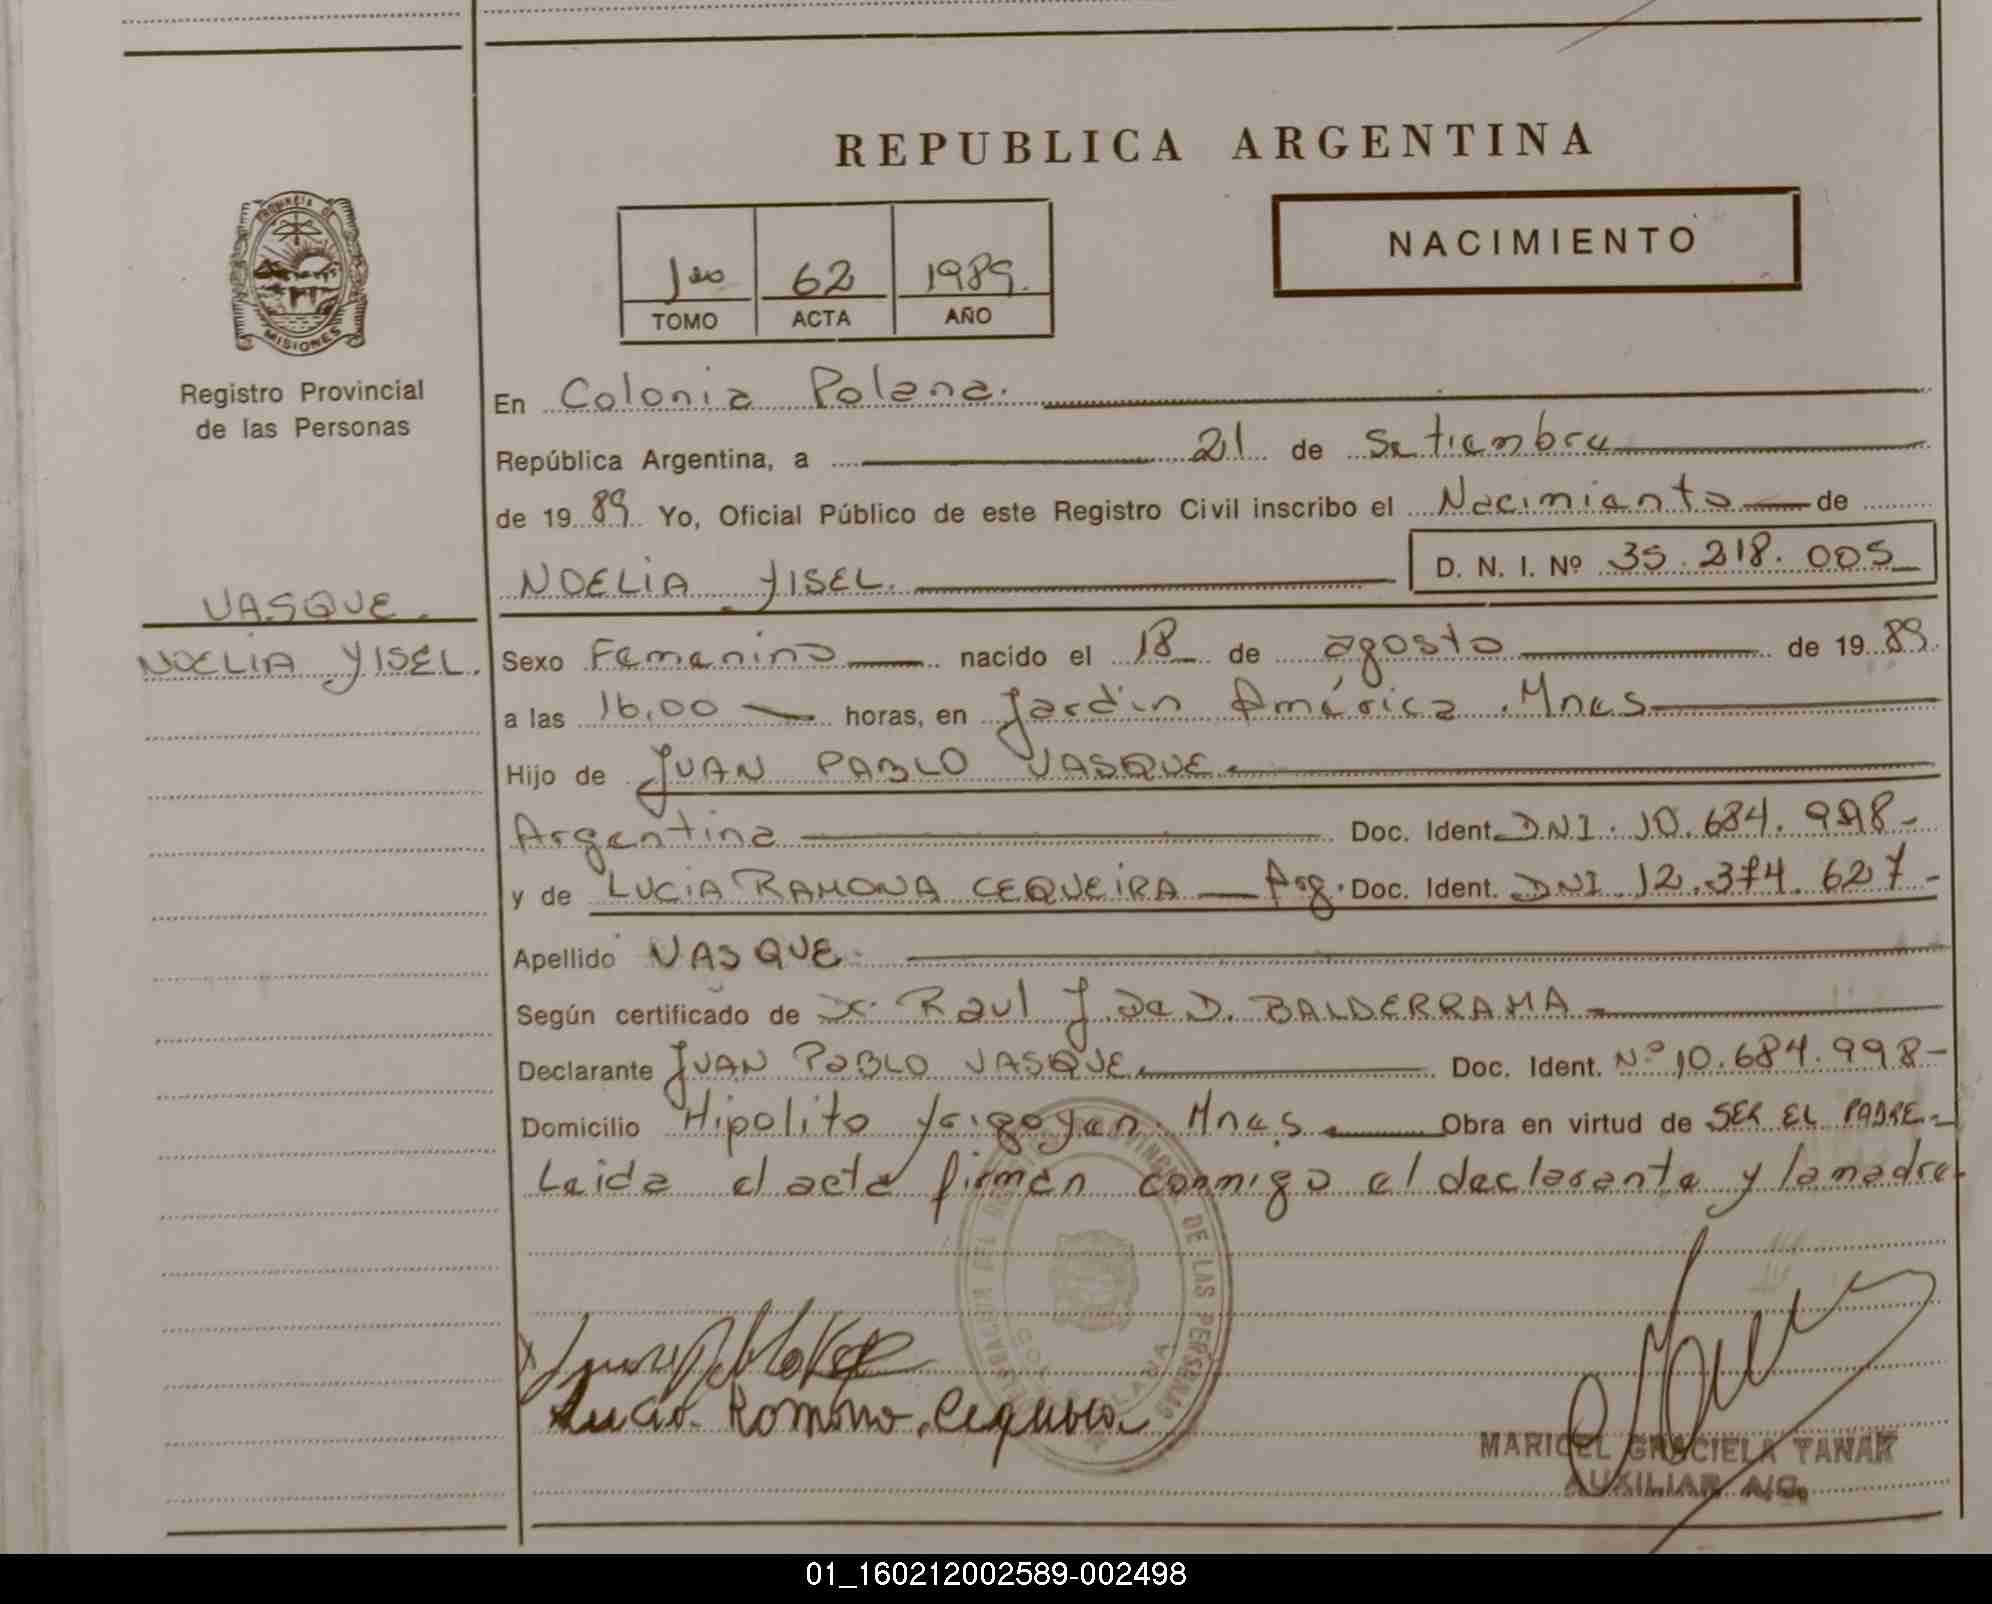 REPUBLICA ARGENTINA
PROVINCIA DE
MISIONES
Registro Provincial
de las Personas
NACIMIENTO
1ro 62 1989.
TOMO ACTA AÑO
En Colonia Polana.
República Argentina, a 21 de Setiembre
de 1989 Yo, Oficial Público de este Registro Civil inscribo el Nacimiento de
NOELIA YISEL. D. N. I. Nº 35.218.005
VASQUE.
NOELIA YISEL.
Sexo Femenino nacido el 18 de agosto de 1989.
a las 16,00 horas, en Jardín América. Mnes
Hijo de JUAN PABLO VASQUE.
Argentina Doc. Ident. DNI. 10.684.998-
y de LUCIA RAMONA CEQUEIRA Arg. Doc. Ident. DNI 12.374.627-
Apellido VASQUE.
Según certificado de Raul J. De D. BALDERRAMA
Declarante JUAN PABLO VASQUE. Doc. Ident. Nº 10.684.998-
Domicilio Hipolito Yrigoyen. Mnes. Obra en virtud de SER EL PADRE-
Leida el acta firman conmigo el declarante y la madre
DE LAS PERSONAS
Lucia Romona Cequeira
MARICEL GRACIELA TANAK
AUXILIAR A/C.
01_160212002589-002498